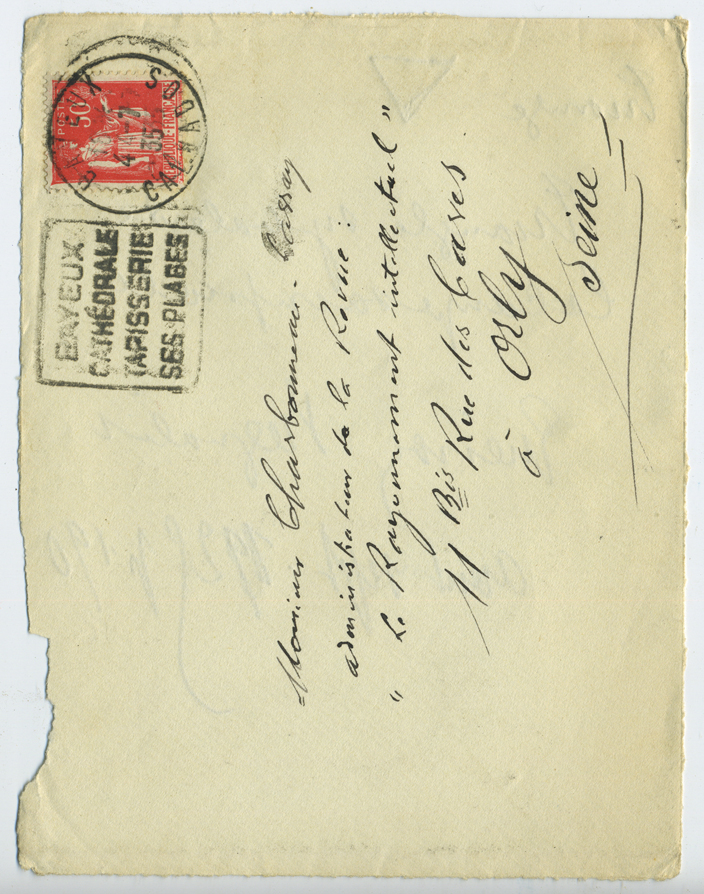 BAYEUX
CALVADOS
4 -7
35
POSTES
50c
REPUBLIQUE FRANÇAISE
BAYEUX
CATHÉDRALE
TAPISSERIE
SES PLAGES
Monsieur Charbonneau-
administrateur de la Revue :
" Le Rayonnement intellectuel "
11 Bis Rue des Caves
à Orly
Seine